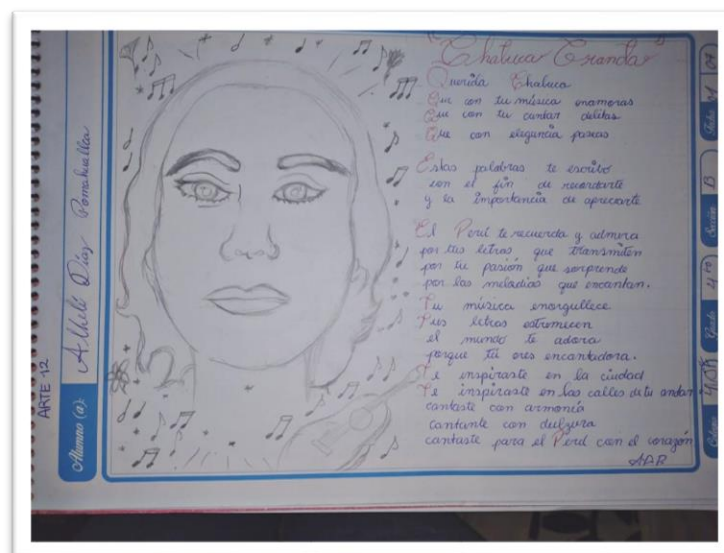 ARTE 12
Alumno (a): Alhelí Díaz Pomahuallca
"Chabuca Granda"
Querida Chabuca
Que con tu música enamoras
Que con tu cantar delitas
Que con elegancia paseas
Estas palabras te escribo
con el fin de recordarte
y la importancia de apreciarte
El Perú te recuerda y admira
por tus letras que transmiten
por tu pasión que sorprende
por las melodías que encantan.
Tu música enorgullece
Tus letras estremecen
el mundo te adora
porque tú eres encantadora.
Te inspiraste en la ciudad
Te inspiraste en las calles de tu andar
cantaste con armonía
cantante con dulzura
cantaste para el Perú con el corazón
Fecha
Sección B
Grado 4to
Colegio